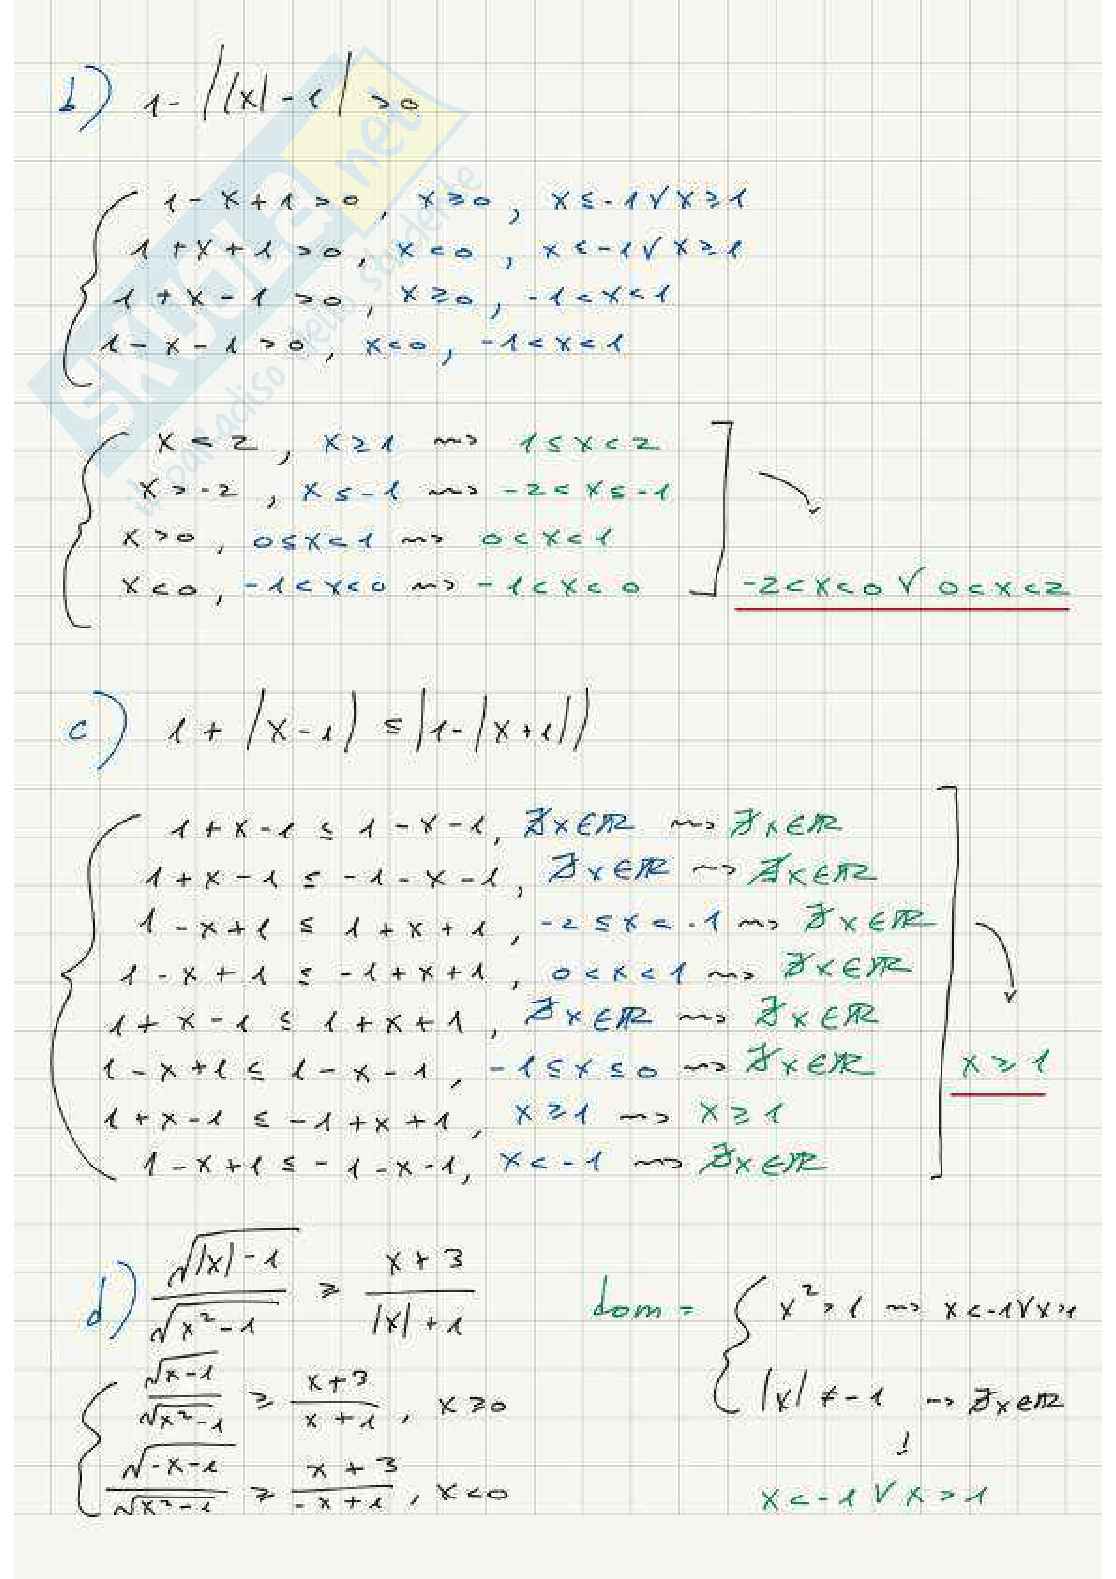 b) 1 - ||x| - 1| > 0
1 - x + 1 > 0, x ≥ 0, x ≤ -1 ∨ x ≥ 1
1 + x + 1 > 0, x < 0, x ≤ -1 ∨ x ≥ 1
1 + x - 1 > 0, x ≥ 0, -1 < x < 1
1 - x - 1 > 0, x < 0, -1 < x < 1
x < 2, x ≥ 1 ⇝ 1 ≤ x < 2
x > -2, x ≤ -1 ⇝ -2 < x ≤ -1
x > 0, 0 ≤ x < 1 ⇝ 0 < x < 1
x < 0, -1 < x < 0 ⇝ -1 < x < 0
-2 < x < 0 ∨ 0 < x < 2
c) 1 + |x - 1| ≤ |1 - |x + 1||
1 + x - 1 ≤ 1 - x - 1, ∄x∈ℝ ⇝ ∄x∈ℝ
1 + x - 1 ≤ -1 - x - 1, ∄x∈ℝ ⇝ ∄x∈ℝ
1 - x + 1 ≤ 1 + x + 1, -2 ≤ x < -1 ⇝ ∄x∈ℝ
1 - x + 1 ≤ -1 + x + 1, 0 < x < 1 ⇝ ∄x∈ℝ
1 + x - 1 ≤ 1 + x + 1, ∄x∈ℝ ⇝ ∄x∈ℝ
1 - x + 1 ≤ 1 - x - 1, -1 ≤ x ≤ 0 ⇝ ∄x∈ℝ
x ≥ 1
1 + x - 1 ≤ -1 + x + 1, x ≥ 1 ⇝ x ≥ 1
1 - x + 1 ≤ -1 - x - 1, x < -1 ⇝ ∄x∈ℝ
d) √(|x| - 1) / √(x² - 1) ≥ (x + 3) / (|x| + 1)
dom = x² > 1 ⇝ x < -1 ∨ x > 1
|x| ≠ -1 ⇝ ∄x∈ℝ
√(x - 1) / √(x² - 1) ≥ (x + 3) / (x + 1), x ≥ 0
√(-x - 1) / √(x² - 1) ≥ (x + 3) / (-x + 1), x < 0
x < -1 ∨ x > 1
SKUOLA.net